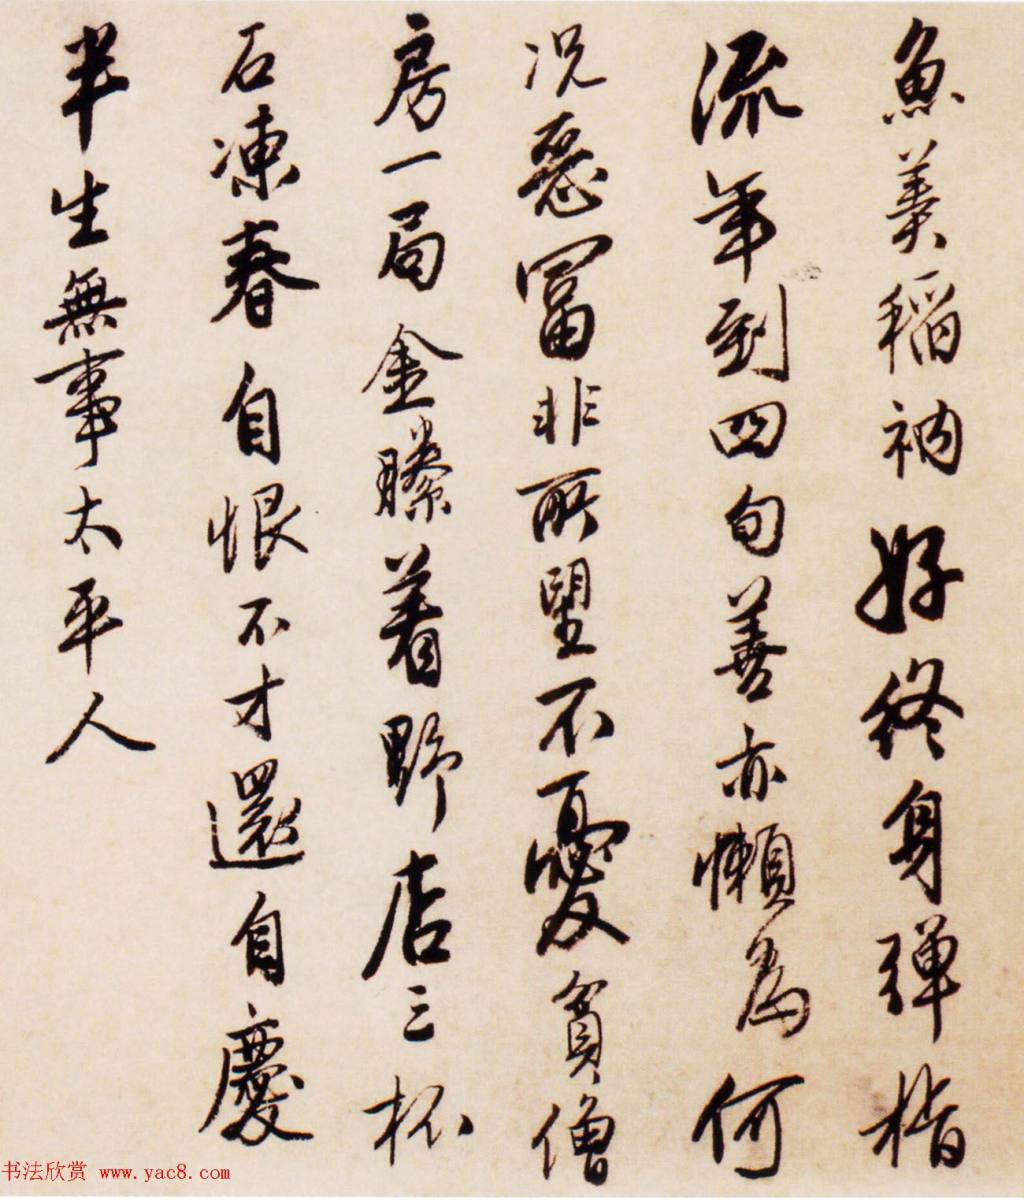 魚羹稻衲好終身彈指
流年到四旬善亦懶為何
況惡富非所望不憂貧僧
房一局金縢着野店三杯
石凍春自恨不才還自慶
半生無事太平人
书法欣赏 www.yac8.com